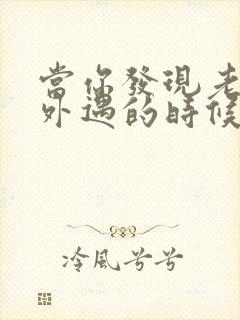 當你發現老
外遇的時候
冷風兮兮